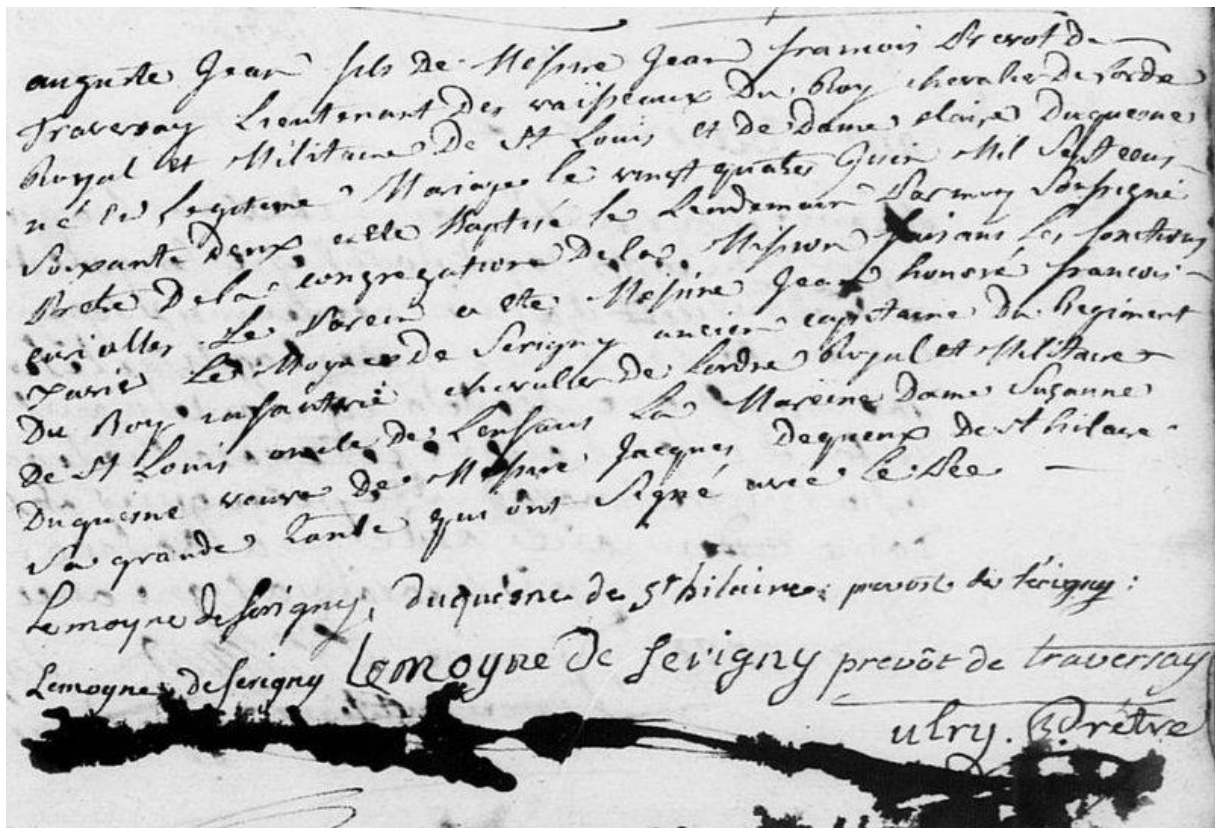 auguste Jean fils de Messire Jean francois Prevot de
Traversay Lieutenant Des vaisseaux Du Roy chevalier De Lordre
Royal et Militaire De St Louis et de Dame claire Duquesne
né de Legitime Mariage le vingt quatre Juin Mil Sept cens
Soixante deux a été Baptisé le Lendemain Par moy Soussigné
Prete De la congregation De la Mission faisant les fonctions
curialles Le Parein a été Messire Jean honoré francois
xavié Le Moyne De Serigny ancien capitaine Du Regiment
Du Roy infanterie chevalier De Lordre Royal et Militaire
De St Louis oncle De Lenfant La Mareine Dame Suzanne
Duquesne veuve de Messire Jacques Dequeux De St hilaire
Sa grande Tante qui ont Signé avec le Pée
Lemoyne de serigny, duquesne de St hilaire: prevost de serigny:
Lemoyne de serigny lemoyne de serigny prevôt de traversay
ulry. Prêtre